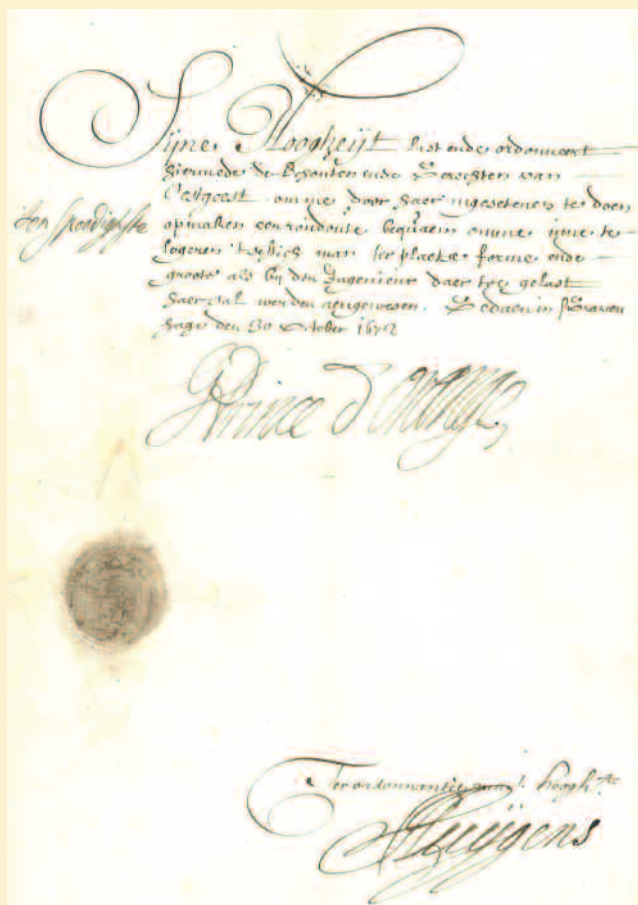 Sijne Hoogheijt last ende ordonneert
hiermede de Schout en ende Gerechten van
Oestgeest omme door haer ingesetenen te doen
ten spoedighste
opmaken een rondoute bequaem omme inne te
logeren twelf man ter plaetse forme ende
groote als bij den Ingenieur daer toe gelast
haer sal werden aengewesen. Gedaen in Graven
hage den 30 October 1672
Prince d'orange
Ter ordonnantie van hoogh.te
Huijgens